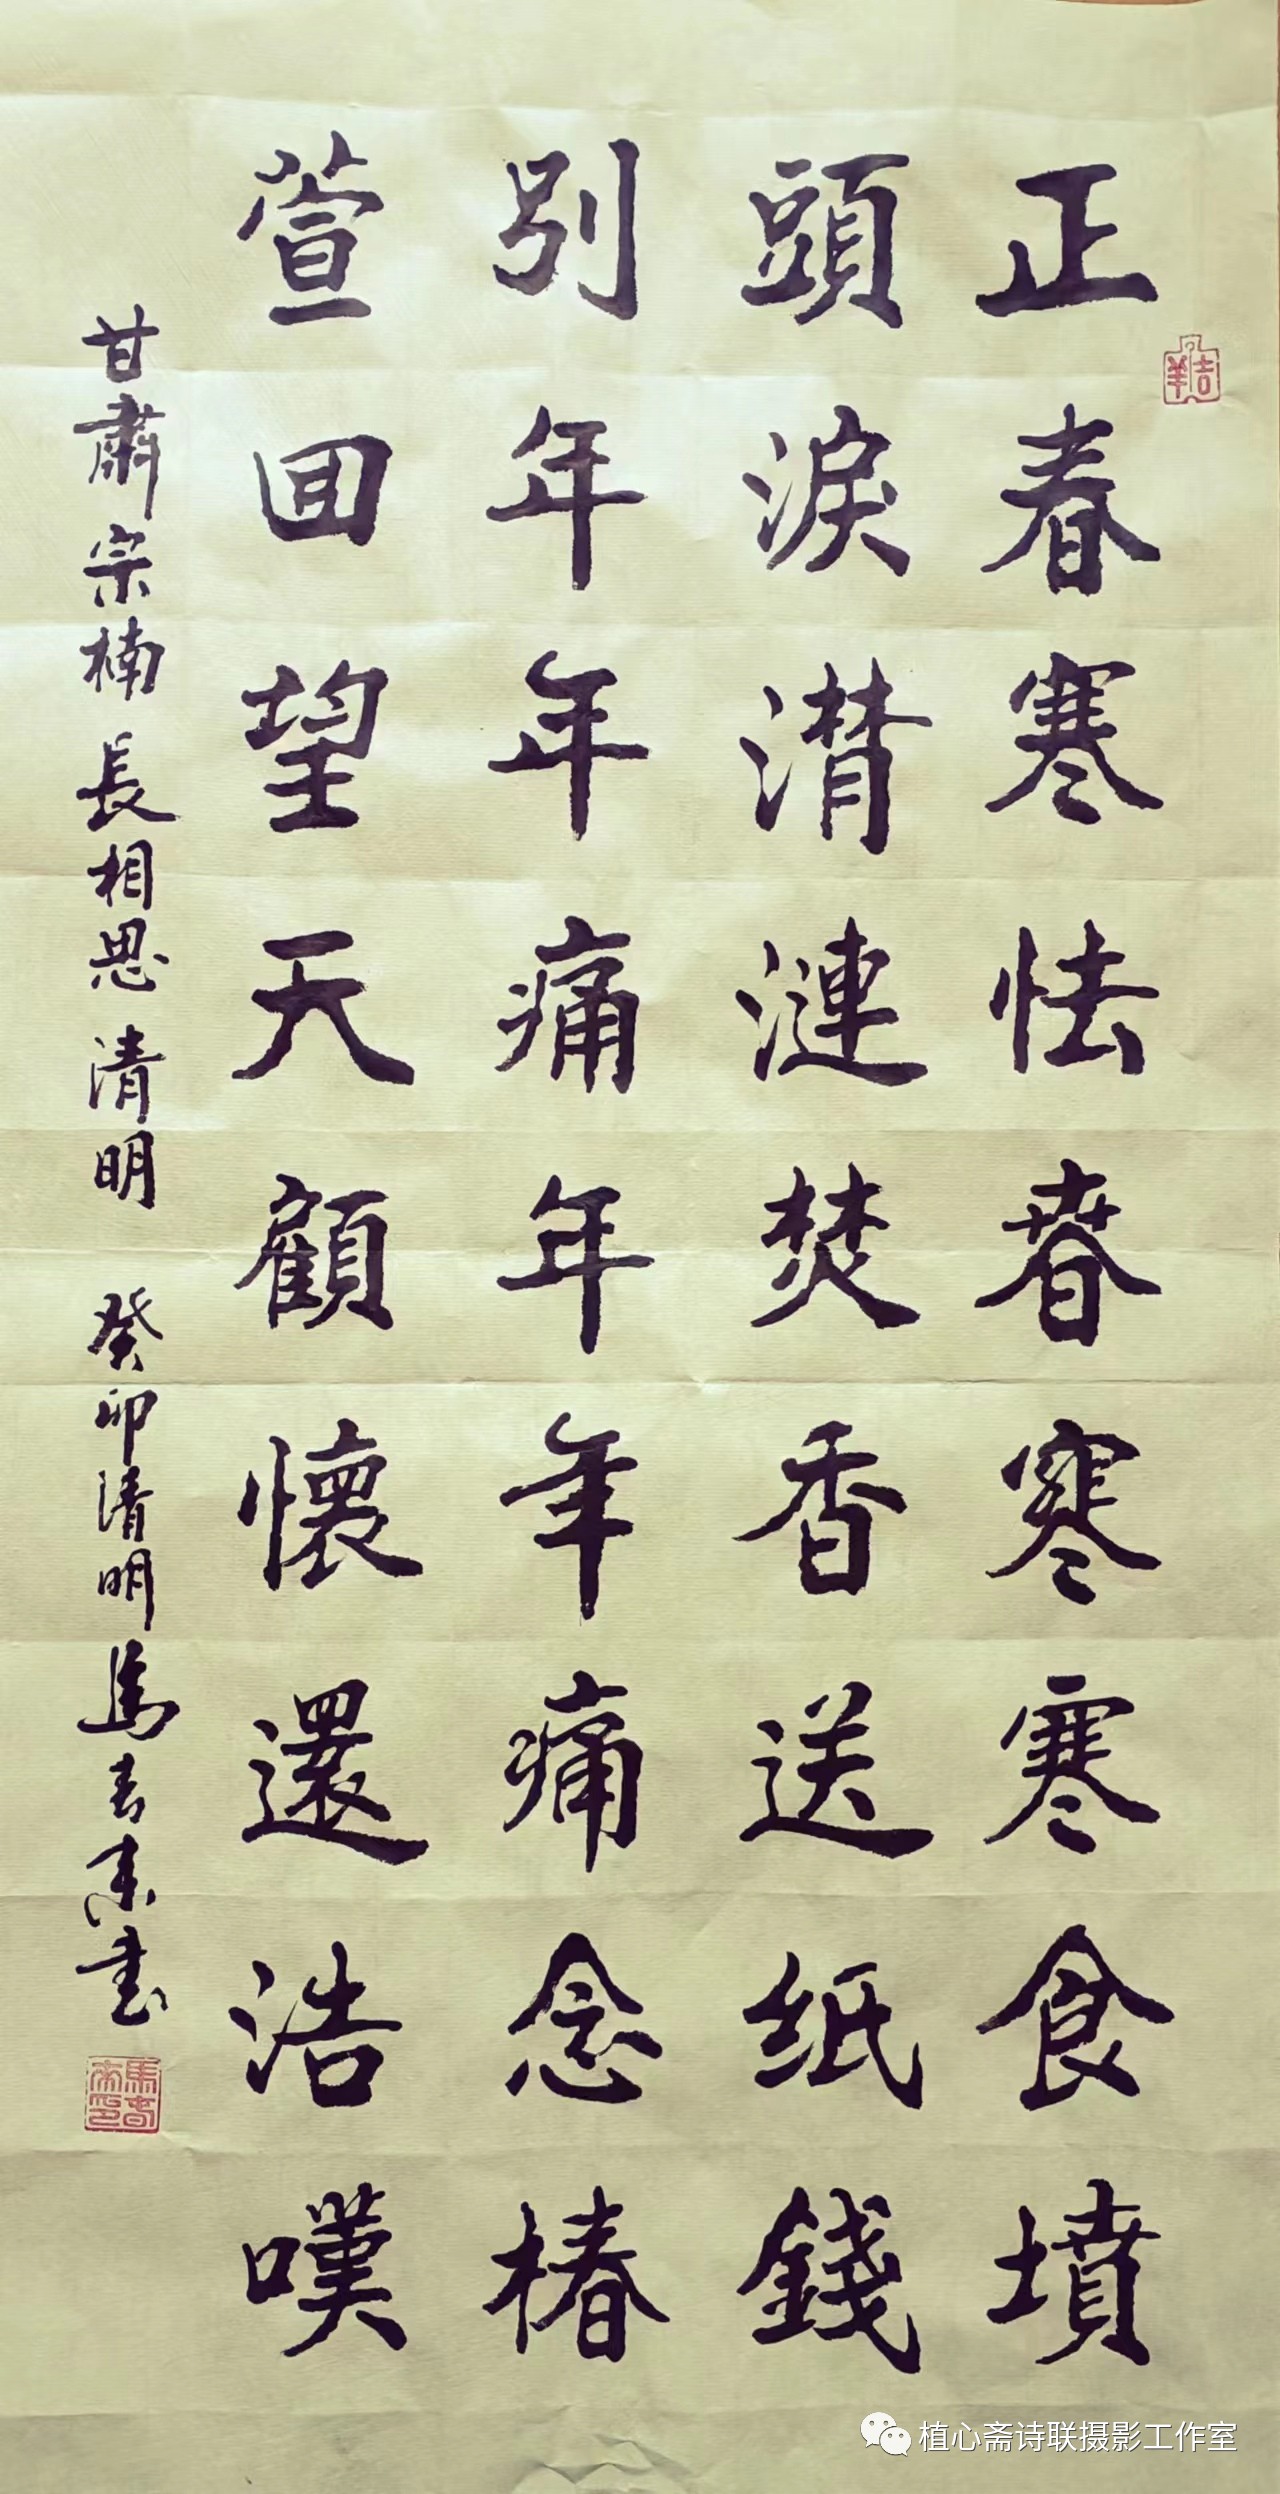 正春寒怯春寒寒食墳
頭淚潸漣焚香送纸錢
別年年痛年年痛念椿
萱回望天顧懷還浩嘆
甘肅宗楠長相思清明 癸卯清明馬春來書
吉羊
植心斋诗联摄影工作室